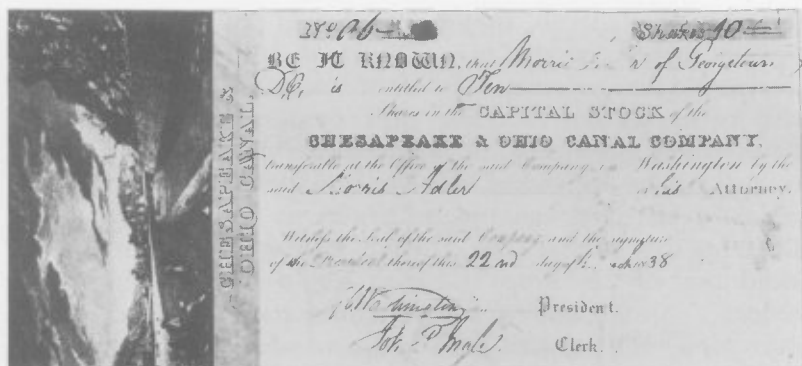 CHESAPEAKE &
OHIO CANAL.
Shares 10
BE IT KNOWN, that Morris of Georgetown
D.C. is entitled to Ten
Shares in the CAPITAL STOCK of the
CHESAPEAKE & OHIO CANAL COMPANY,
transferable at the Office of the said Company in Washington by the
said Morris Adler or his Attorney.
Witness the Seal of the said Company and the signature
of the President thereof this 22nd day of 38
Washington President.
Clerk.